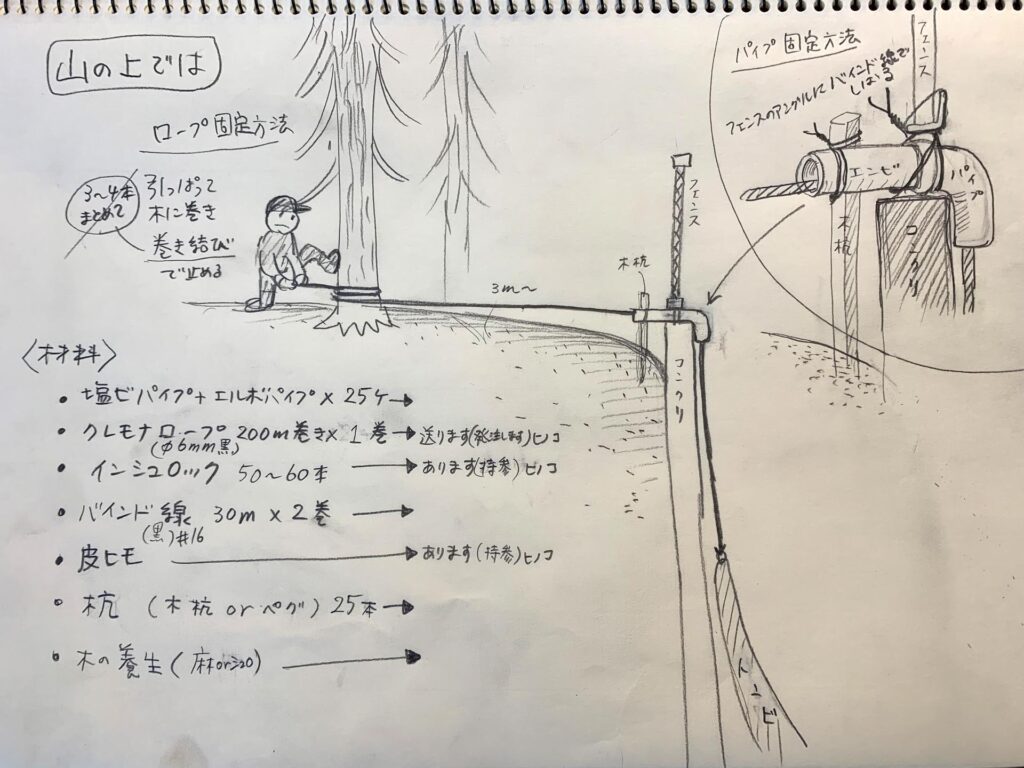 山の上では
ロープ固定方法
3〜4本
まとめて
引っぱって
木に巻き
巻き結び
で止める
3m〜
木杭
フェンス
コンクリ
トンビ
パイプ固定方法
フェンスのアングルにバインド線で
しばる
フェンス
エンビ
パイプ
木杭
コンクリ
〈材料〉
・塩ビパイプ+エルボパイプ×25ケ→
・クレモナロープ 200m巻き×1巻→送ります(発注します)ヒノコ
(φ6mm黒)
・インシュロック 50〜60本→あります(持参)ヒノコ
・バインド線 30m×2巻→
(黒)#16
・皮ヒモ→あります(持参)ヒノコ
・杭 (木杭orペグ)25本→
・木の養生(麻orシュロ)→